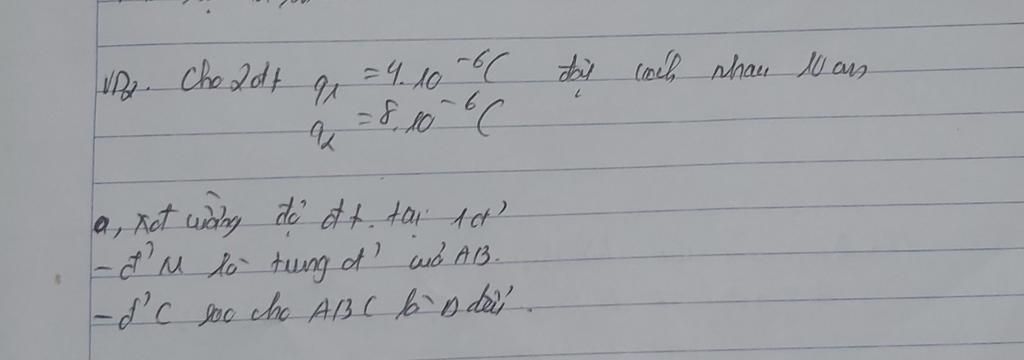 VD2. Cho 2đt q1 = 4.10^-6C đặt cách nhau 10cm
q2 = 8.10^-6C
a, xđ cường độ đt. tại 1đ'
- đ' M là trung đ' của AB.
- đ' C sao cho ABC là Δ đều.